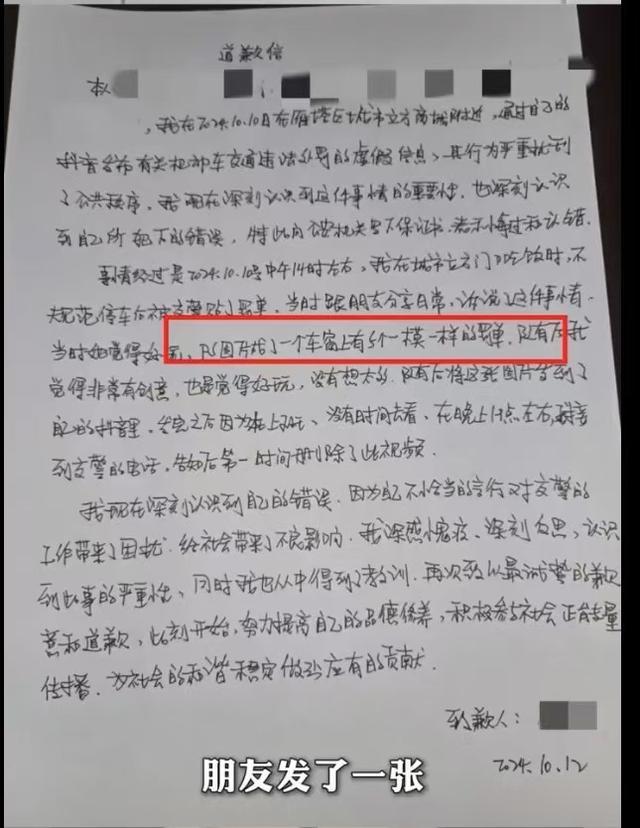 道歉信
本人
,我在2024.10.10日在雁塔区城市立方商城附近,通过自己的
抖音发布有关机动车交通违法处罚的虚假信息、其行为严重扰乱到
了公共秩序。我现在深刻认识到这件事情的重要性。也深刻认识
到自己所犯下的错误,特此向公安机关写下保证书。表示悔过和认错.
事情经过是2024.10.10号中午14时左右,我在城市立方门口吃饭时,不
规范停车后被交警贴了罚单。当时跟朋友分享日常,诉说了这件事情.
当时她觉得好,P图片 了一个车窗上有5个一模一样的罚单.随后
觉得非常有创意,也是觉得好玩,没有想太多.随后将这张图片发到了
自己的抖音里.发完之后因为在上班、没有时间去看、在晚上 点左右,接
到交警的电话,告知后第一时间删除了此视频.
我现在深刻认识到自己的错误.因为自己不恰当的言行对交警的
工作带来了困扰.给社会带来了不良影响.我深感愧疚、深刻反思,认识
到此事的严重性,同时我也从中得到了教训.再次致以最诚挚的歉
意和道歉,此刻开始,努力提高自己的品德修养,积极参与社会正能量
传播.为社会的和谐稳定做出应有的贡献.
致歉人:
2024.10.12
朋友发了一张